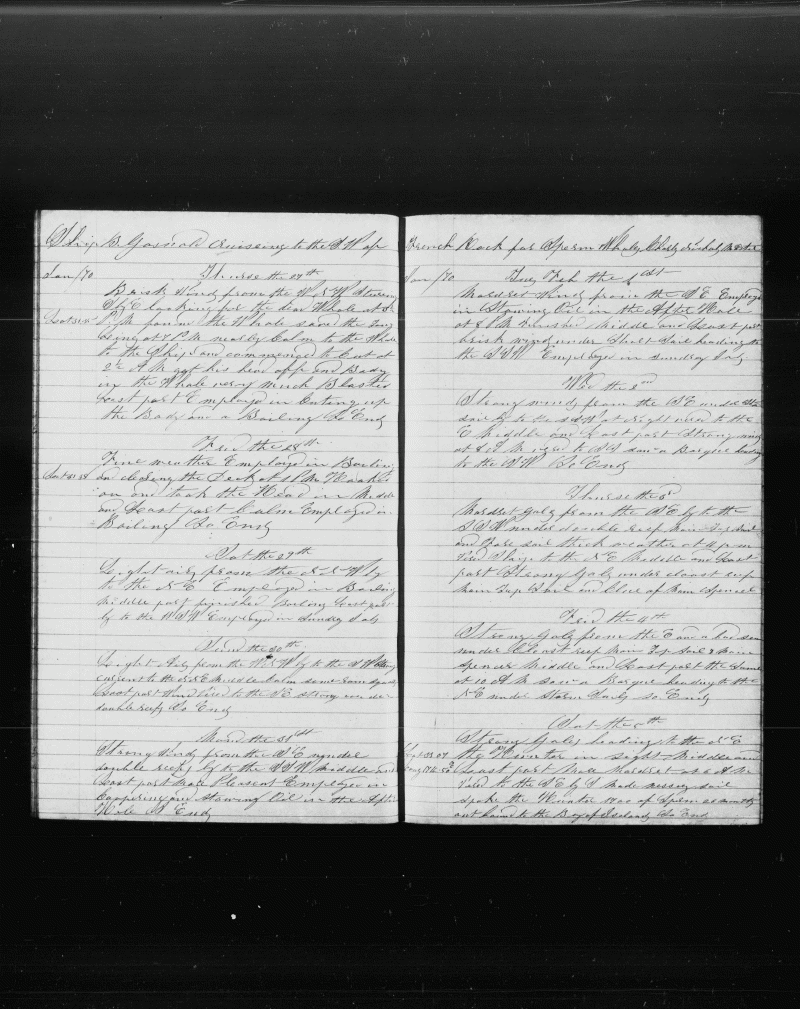 Ship B Gosnold Cruising to the S W of
Jan /70 Thurse the 27th
Brisk Wind from the W N W Steering
S by E looking for the dear Whale at 3
Lat 31 51 P M found the Whale saw the
at 7 P M nearly Calm to the Whale
to the Ship and commenced to Cut at
2 A M got his head off and Body
in the Whale very much Blasted
Last part Employed in Cuting up
the Body and a Boiling So Ends
Fred the 28th
Fine weather Employed in Boiling
and clearing the Deck at 5 P M Hooked
on and took the Head in Middle
and Last part Calm Employed in
Boiling So Ends
Sat the 29th
Light airs from the N N W by
to the N E Employed in Boiling
Middle part finished Boiling Last part
by to the W S W Employed in Sundry Jobs
Sund the 30th
Light Airs from the W N W by to the S W
to the N E Middle Calm some rain squals
Last part Wind to the S E strong under
double reefs So Ends
Mond the 31st
Strong Winds from the S E under
double reefs by to the S S W Middle and
Last part More Pleasent Employed in
Coopering and Stowing Oil in the After
Hole So Ends
French Rock for Sperm Whales Master
Jan /70 Tusy Feb the 1st
Modret Winds from the S E Employed
in Stowing Oil in the After Hole
at 8 P M finished Middle and Last part
brisk wind under Short Sail heading to
the S S W Employed in sundry Jobs
Wed the 2nd
Strong winds from the S E under
sail by to the S S W at Night to the
E Middle and Last part Strong winds
at 8 A M to S W saw a Barque heading
to the S W So Ends
Thurse the 3d
Modret Gals from the S E by to the
S S W under double reef Main Top Sail
and Fore sail thick weather at 4 P M
Wore Ship to the N E Middle and Last
part Strong Gals under cloast reef
Main Top Sail and Main Spencer
Fred the 4th
Strong Gals from the E and a bad sea
under Cloast reef Main Top Sail & Main
Spencer Middle and Last part the Same
at 10 A M saw a Barque heading to the
N E under Storm Sails So Ends
Sat the 5th
Strong Gals heading to the N E
the Hunter in sight Middle and
Last part More Modret at 6 A M
to the S E by S Made more sail
spoke the Hunter 1700 of Sperm months
out bound to the Bay of Islands So Ends